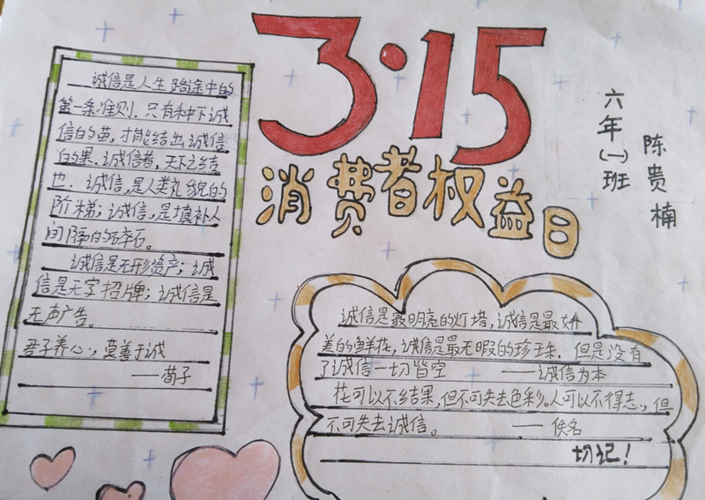 3·15
消费者权益日
六年(一)班
陈贵楠
诚信是人生路途中的
第一条准则，只有种下诚
信的苗，才能结出诚信
的果，诚信者，天下之结
也。诚信，是人类礼貌的
阶梯；诚信，是填补人
间隙的碎石。
诚信是无形资产；诚
信是无字招牌；诚信是
无声广告。
君子养心，莫善于诚
——荀子
诚信是最明亮的灯塔，诚信是最
美的鲜花，诚信是最无暇的珍珠，但是没有
了诚信一切皆空 ——诚信为本
花可以不结果，但不可失去色彩。人可以不得志，但
不可失去诚信。 ——佚名
切记！